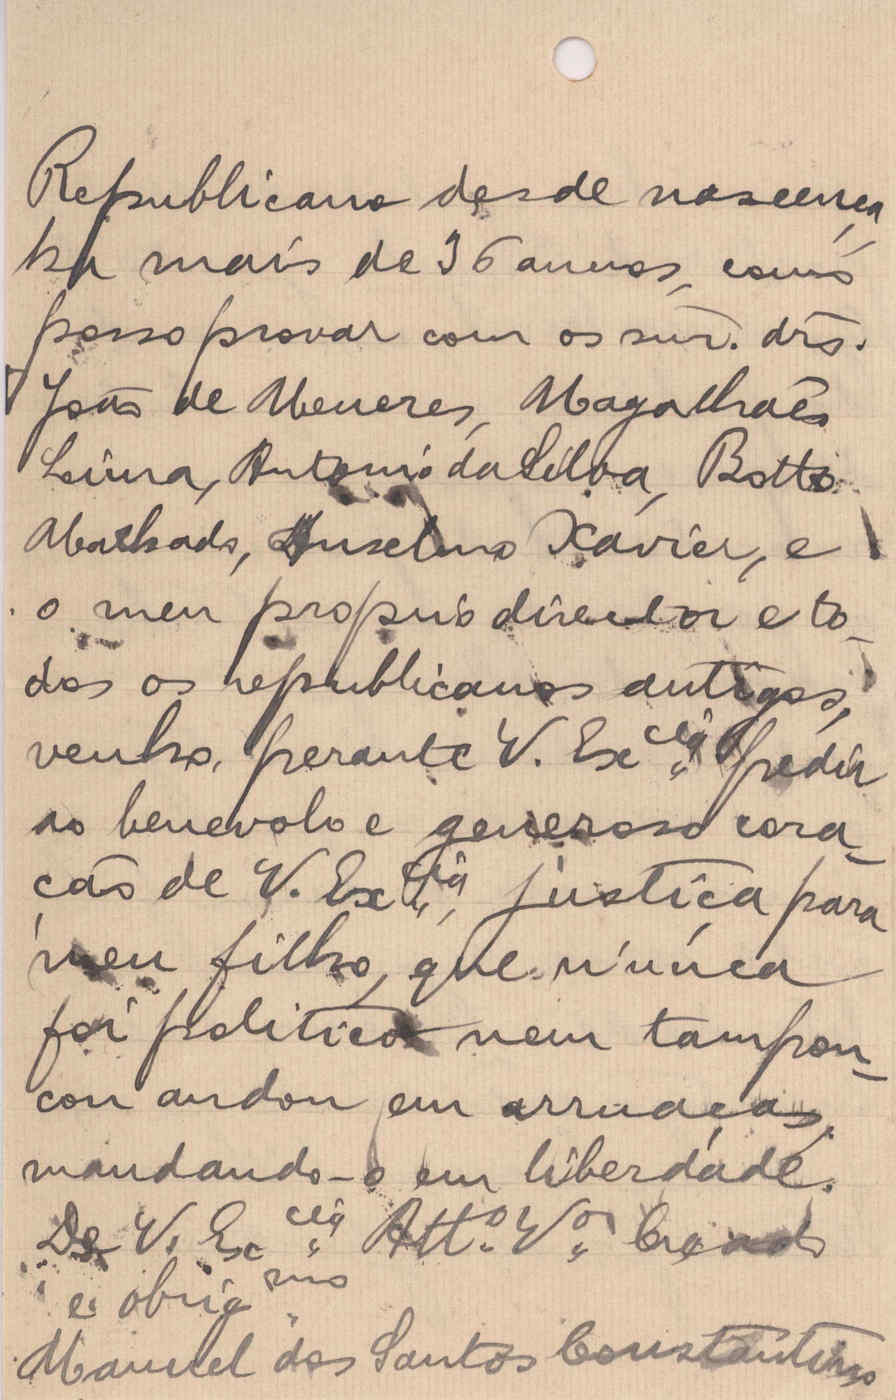 Republicano desde nascença,
ha mais de 36 annos, como
posso provar com os snr. drs.
João de Menezes, Magalhães
Lima, Antonio da Silva, Botto
Machado, Anselmo Xavier, e
o meu proprio director e to-
dos os republicanos antigos,
venho, perante V. Ex.cia pedir
ao benevolo e generoso cora-
ção de V. Ex.cia, justiça para
meu filho, que nunca
foi politico nem tampou-
cou andou em arruaças,
mandando-o em liberdade.
De V. Ex.cia Att.o V.or Creado
e obrig.mo
Manuel dos Santos Constantino